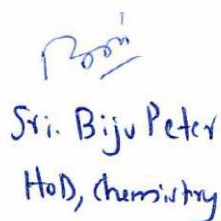 Sri. Biju Peter
HoD, Chemistry